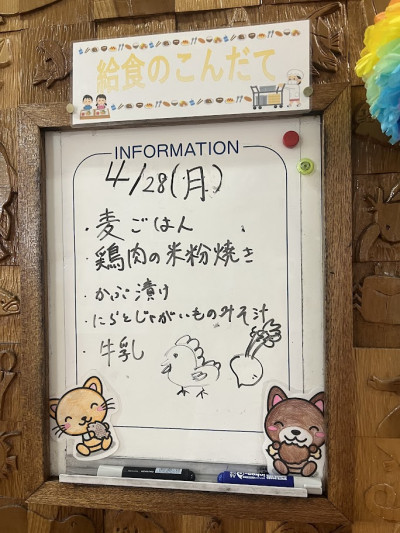 給食のこんだて
INFORMATION
4/28(月)
・麦ごはん
・鶏肉の米粉焼き
・かぶ漬け
・にらとじゃがいものみそ汁
・牛乳